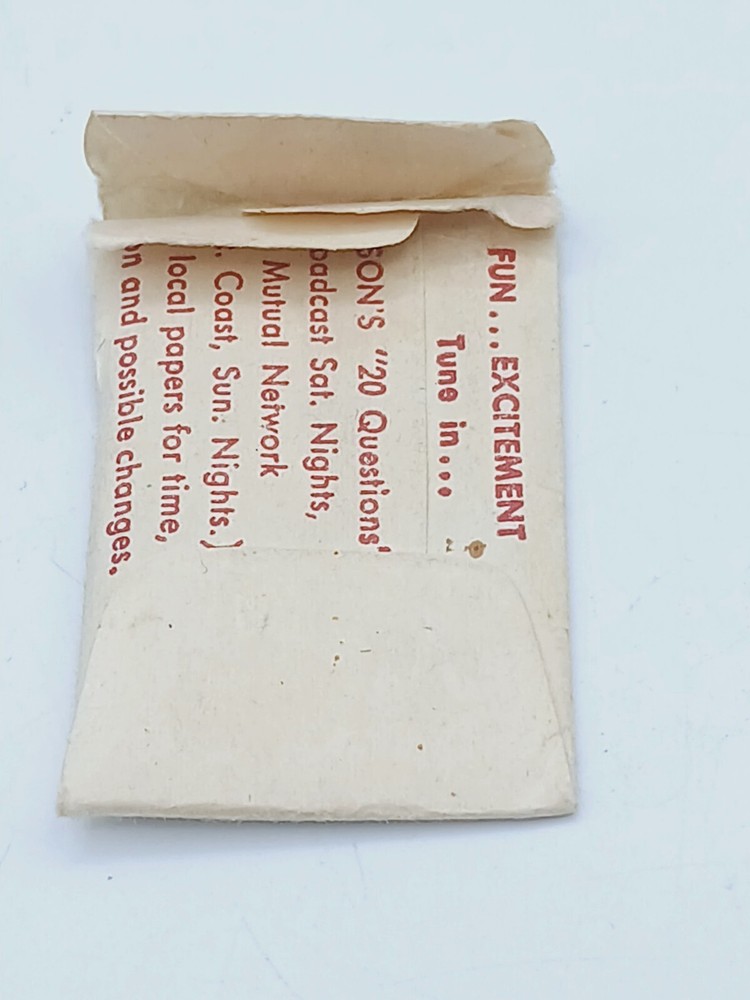 FUN...EXCITEMENT
Tune in...
SON'S "20 Questions"
oadcast Sat. Nights,
Mutual Network
. Coast, Sun. Nights.)
local papers for time,
n and possible changes.